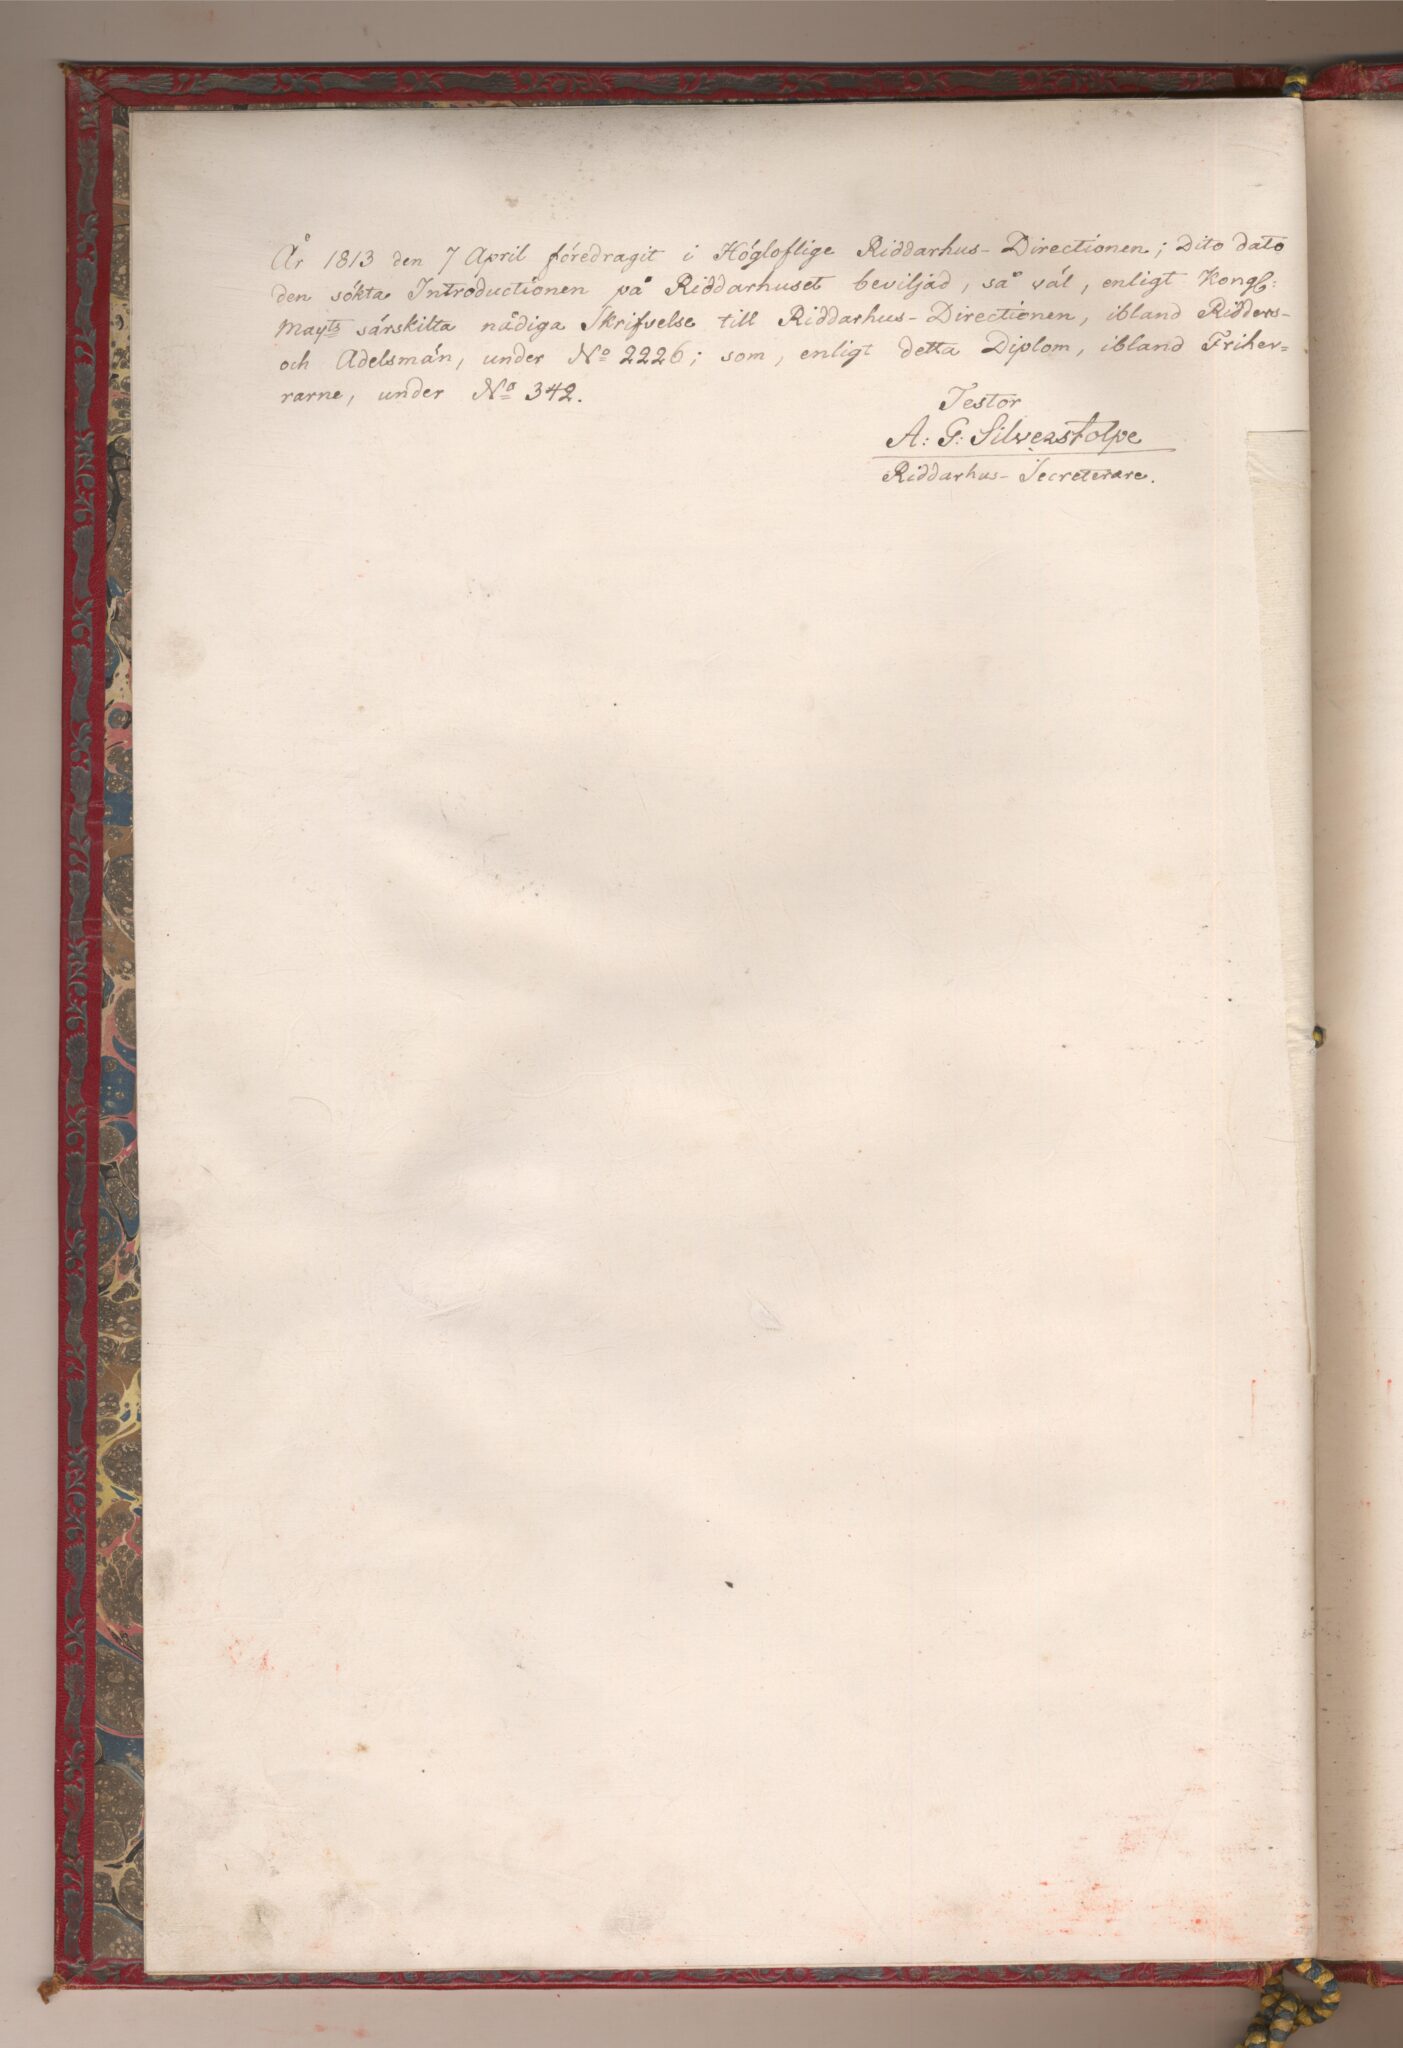 År 1813 den 7 April föredragit i Högloflige Riddarhus-Directionen; Dito dato
den sökta Introductionen på Riddarhuset beviljad, så väl, enligt Kongl:
Mayts särskilta nådiga Skrifvelse till Riddarhus-Directionen, ibland Ridders-
och Adelsmän, under No 2226; som, enligt detta Diplom, ibland Friher=
rarne, under No 342.
Testor
A: G: Silverstolpe
Riddarhus-Secreterare.